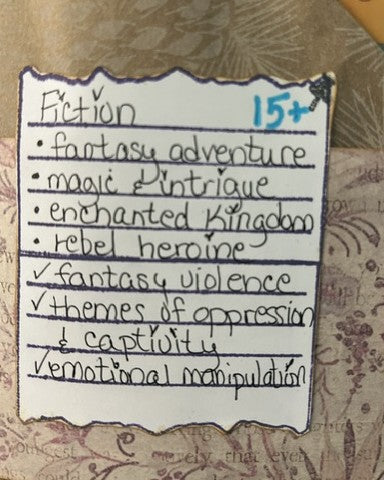 Fiction 15+
• fantasy adventure
• magic & intrigue
• enchanted Kingdom
• rebel heroine
✓ fantasy violence
✓ themes of oppression
& captivity
✓ emotional manipulation